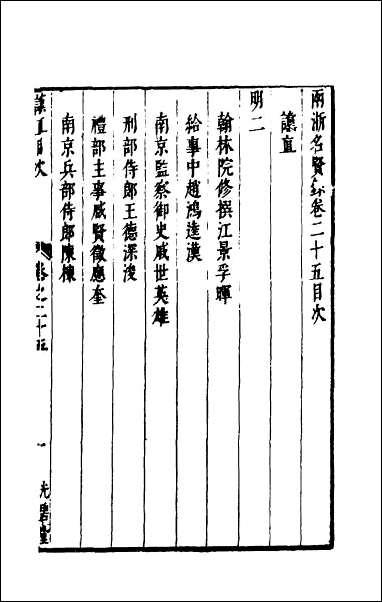 兩浙名賢錄卷二十五目次
讜直
明二
翰林院修撰江景孚暉
給事中趙鴻逵漢
南京監察御史戚世英雄
刑部侍郎王德深浚
禮部主事戚賢徵應奎
南京兵部侍郎陳棟
讜直目次
卷之二十五
一
光碧堂